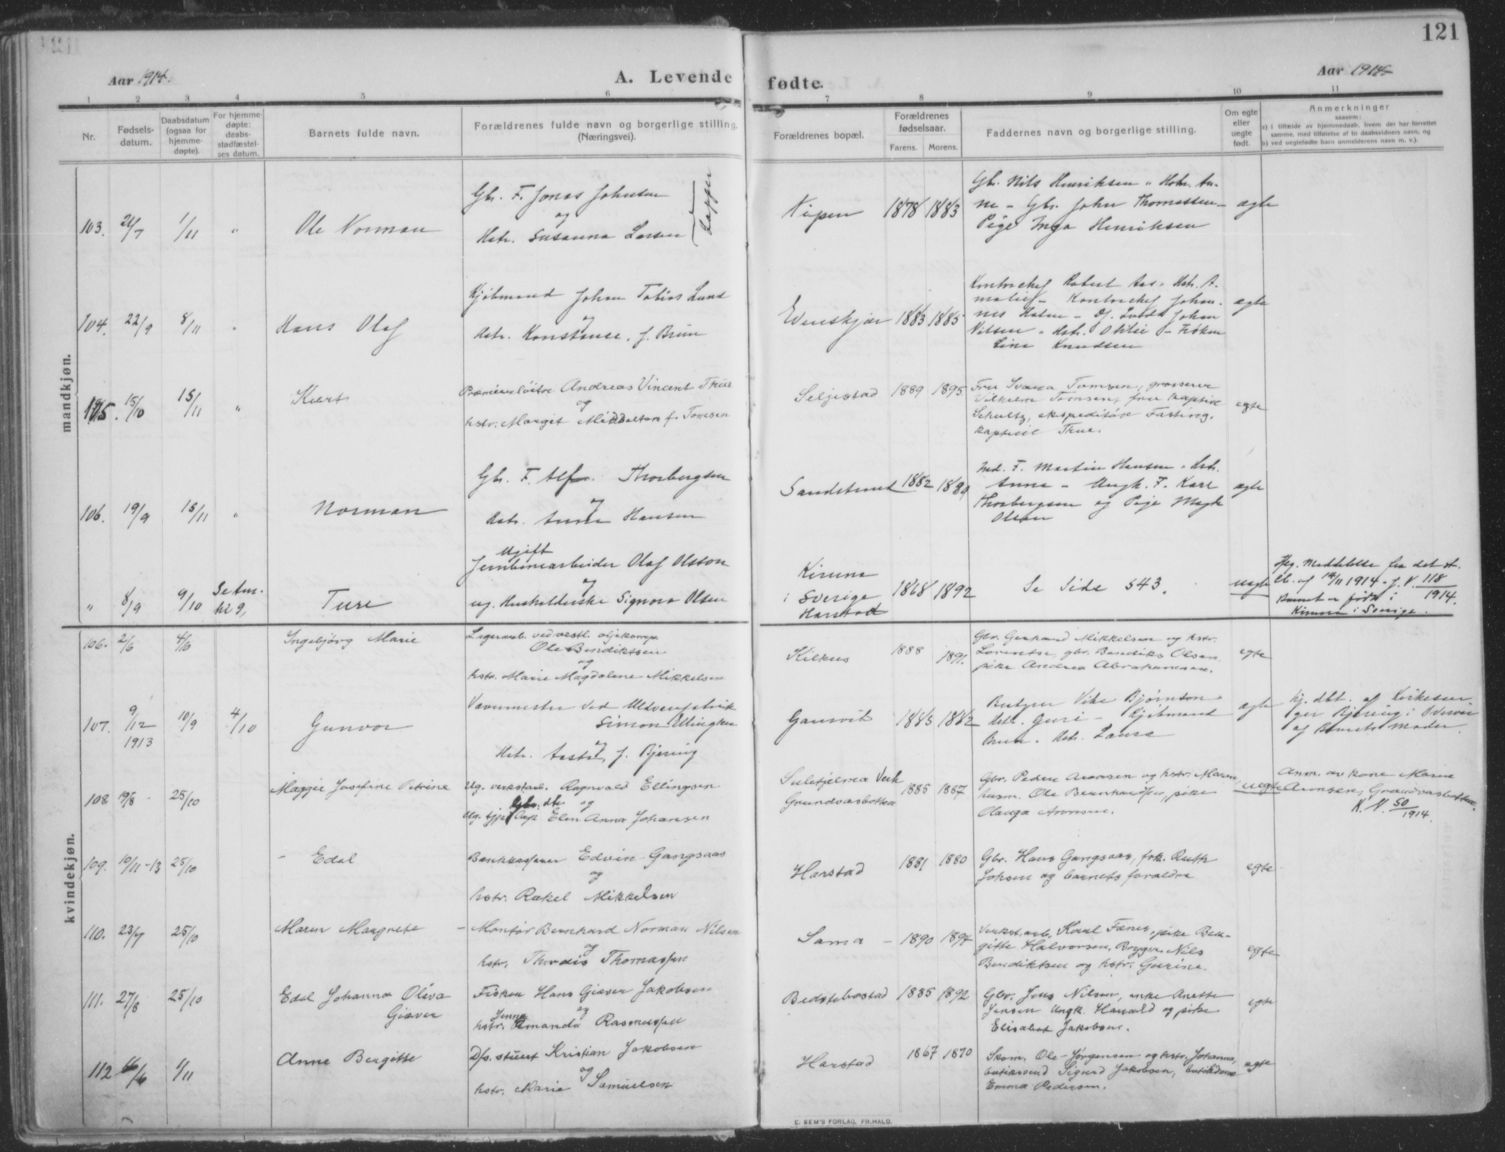 121
Aar 1914.
A. Levende fødte.
Aar 1914
1 2 3 4 5 6 7 8 9 10 11
Nr.
Fødselsdatum.
Daabsdatum (ogsaa for hjemmedøpte).
For hjemmedøpte: daabsstadfæstelses datum.
Barnets fulde navn.
Forældrenes fulde navn og borgerlige stilling. (Næringsvei).
Forældrenes bopæl.
Forældrenes fødselsaar.
Farens. Morens.
Faddernes navn og borgerlige stilling.
Om egte eller uegte født.
Anmerkninger
saasom:
a) i tilfælde av hjemmedaab, hvem der har forrettet samme, med tilføielse af to daabsvidners navn, og
b) ved uegtefødte barn anmelderens navn m. v.).
mandkjøn.
103. 26/7 1/11 " Ole Norman
Gbr. F. Jonas Johnsen
og
Hstr. Susanna Larsen
1878 1883
Gbr. Nils Henriksen - Hstr. An-
ne - Gbr. John Thomassen -
Pige Inga Henriksen
ægte
104. 22/9 8/11 " Hans Olaf
Kjøbmand Johan Tobias Lund
og
Hstr. Konstanse, f. Bruun
Evenskjær 1883 1885
Kontorchef Robert Aas, Hstr. A-
malie - Kontorchef Johan-
nes Holm - Johan
Nilsen - Hstr. Otilie - Frøken
Lina Knudsen
ægte
105. 15/10 15/11 "
Premierløitn. Andreas Vincent Thue
og
hstr. Margit Middelton f. Tomsen
Seljestad 1889 1895
Fru Svava Tomsen, grosserer
Vilhelm Tomsen, fru kaptein
Schultz, ekspeditør Fasting,
kaptein Thue.
egte
106. 19/9 15/11 " Norman
Gbr. F. Alf Thorbergsen
og
Hstr. Anna Hansen
1882
F. Martin Hansen - Hstr.
Anna - Ungk. F. Karl
Thorbergsen og Pige
Olsen
ægte
" 8/9 9/10 Ture
Ugift
Jernbanearbeider Olaf Olsson
og
ug. Husholderske Signora Olsen
Kiruna
i Sverige
Harstad
1868 1892
Se Side 543.
uægte
Jfg. Meddelelse fra
af 14/11 1914 - J. N. 118/1914.
Barnet er født i
Kiruna i Sverige.
kvindekjøn.
106. 2/6 4/6 Ingebjørg Marie
Lagerarb. ved vestl. oljekomp.
Ole Bendiktsen
og
hstr. Marie Magdalene Mikkelsen
Kilhus 1888 1891.
Gbr. Gerhard Mikkelsen og hstr.
Lorentse, gbr. Bendiks Olsen,
pike Andrea Abrahamsen.
egte
107. 9/12 1913 10/9 4/10 Gunvor
Vævmester ved
Simon Ellingsen
og
Hstr. Aasta, f. Bjering
Gansvik 1883 1882
Vike Bjørnson -
Hstr. Guri - Kjøbmand
Bruun - Hstr. Laura
ægte
hj. dbt. af
Bjering i
af Barnets Moder.
108 19/8 - 25/10 Maggie Josefine Petrine
Ug. verkstarb. Ragnvald Ellingsen
Gbr. dtr. og
Ug. tjpk. Elen Anna Johansen
Sulitjelma Verk
Grundvasbotten
1885 1887
Gbr. Peder Aronsen og hstr. Maren,
husm. Ole Bernhardsen, pike
Olauga Aronsen.
uegte
Anm. av kone Marie
Aronsen, Grundvasbotten.
K. N. 50/1914.
109. 10/11-13 25/10 - Edel
Bankkasserer Edvin Gangsaas
og
hstr. Rakel Mikkelsen
Harstad 1881 1880
Gbr. Hans Gangsaas, frk. Ruth
Johsen og barnets forældre
egte
110. 23/7 25/10 Maren Margrete
- Montør Bernhard Norman Nilsen
og
hstr. Thordis Thomassen
Sama - 1890 1894
Verkst.arb. Karl Fænes, pike Ber-
gitte Halvorsen, Brygger Nils
Bendiktsen og hstr. Gurine.
egte
111. 27/8 25/10 Edel Johanna Oliva
Giæver
Fisker Hans Giæver Jakobsen
Jenny og
hstr. Amanda Rasmussen
Bedstebostad 1885 1892
Gbr. Jens Nilsen, enke Anette
Jensen ungk. Harald og pike
Elisabet Jakobsen.
egte
112 1/11 Anne Bergitte
Dps. stuert Kristian Jakobsen
og
hstr. Marie Samuelsen
Harstad 1867 1870
Skom. Ole Jørgensen og hstr. Johanna,
butiksvend Sigurd Jakobsen, butikdame
Emma Pedersen.
egte
E. SEM'S FORLAG, FR.HALD.